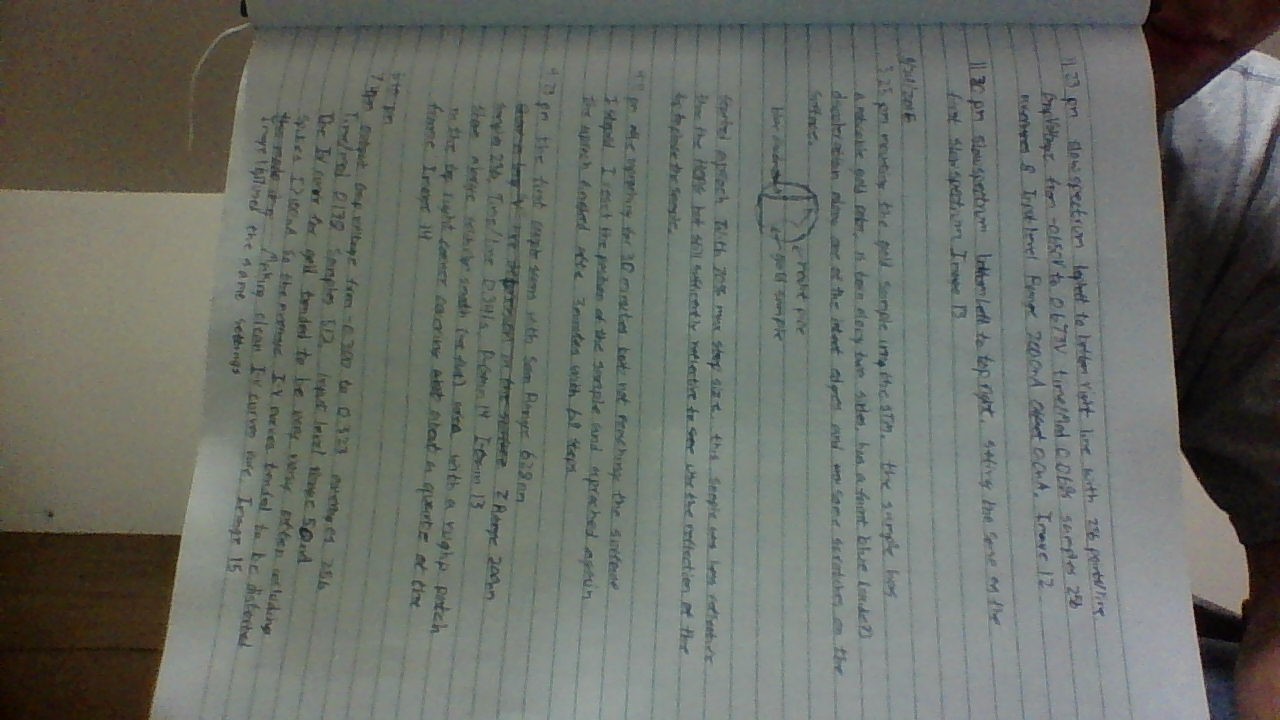 11:23 pm slow spectrum top left to bottom right line with 256 points/line
Voltage from -0.650V to 0.673V time/Mod 0.069s samples 256
8 Input level Range 2000nA Offset 0.0nA, Image 12
11:30 pm slow spectrum bottom left to top right, the same as the
first slow spectrum Image 13
/2016
3:25 pm mounting the gold sample the STM. the sample has
a noticable gold color, is torn along two sides, has a faint blue
discoloration along one of the intact edges and some scratches on the
surface.
gold sample
Started aproach With 70% max step size. this sample was less reflective
than the HOPG but still sufficiently reflective to use the reflection of the
tip to place the sample.
pm after aproaching for 30 minutes but not reaching the surface
I stoped. I reset the position of the sample and aproached again
The aproach finished after 3 minutes with 68 steps
pm the first scans with Scan Range 628nm
depression in the surface Z Range 200nm
samples 256, Time/Line 0.341s, P-Gain 14 I-Gain 13
Show a smooth area with a rough patch
in the top right corner covering about a quarter of the
frame Image 14
pm
pm output voltage from -0.300 to 0.323 averages 256
Time/mod samples 512, input level range 50nA
The IV curve for gold tended to be very noisy often including
spikes I>100nA so the average I-V curves tended to be distorted
Making clean I-V curves rare. Image 15
Image the same settings